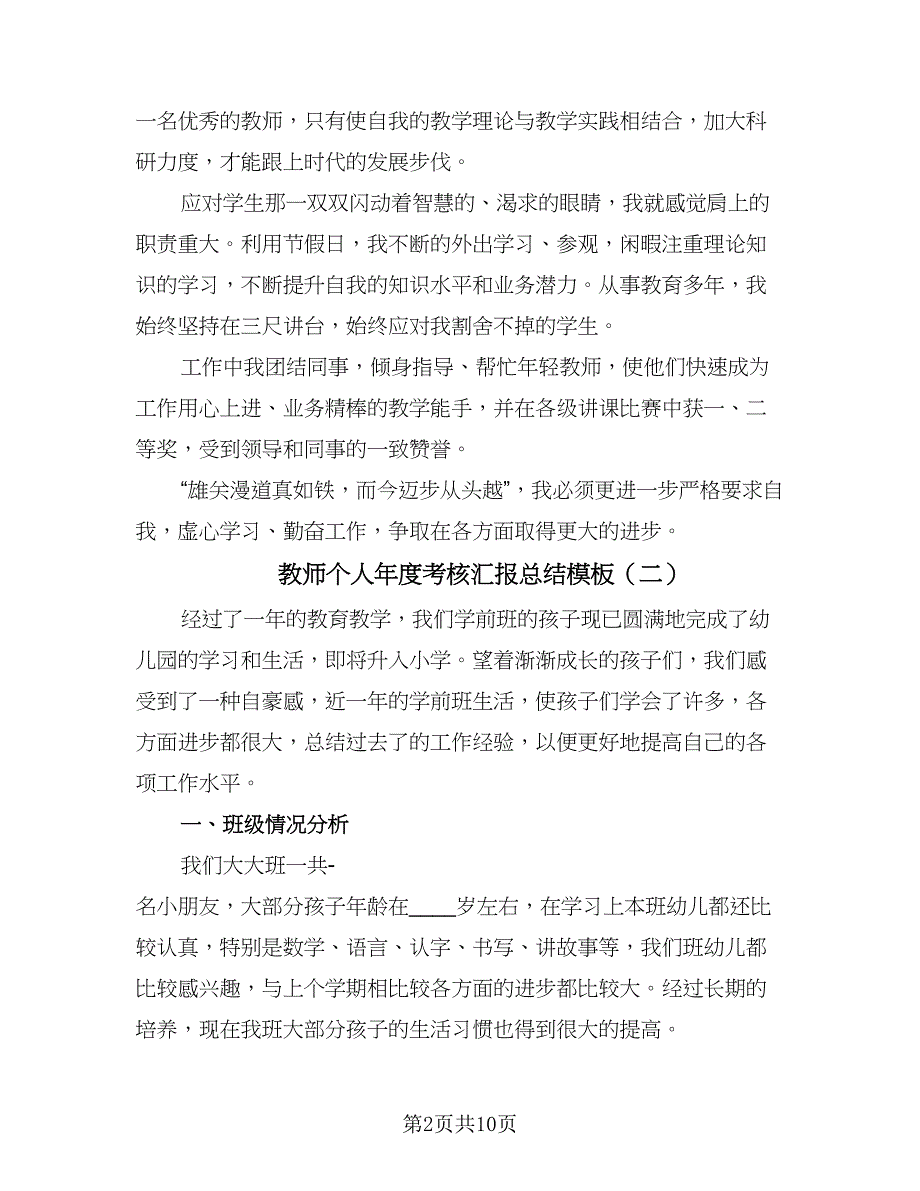 一名优秀的教师，只有使自我的教学理论与教学实践相结合，加大科
研力度，才能跟上时代的发展步伐。
应对学生那一双双闪动着智慧的、渴求的眼睛，我就感觉肩上的
职责重大。利用节假日，我不断的外出学习、参观，闲暇注重理论知
识的学习，不断提升自我的知识水平和业务潜力。从事教育多年，我
始终坚持在三尺讲台，始终应对我割舍不掉的学生。
工作中我团结同事，倾身指导、帮忙年轻教师，使他们快速成为
工作用心上进、业务精棒的教学能手，并在各级讲课比赛中获一、二
等奖，受到领导和同事的一致赞誉。
“雄关漫道真如铁，而今迈步从头越”，我必须更进一步严格要求自
我，虚心学习、勤奋工作，争取在各方面取得更大的进步。
教师个人年度考核汇报总结模板（二）
经过了一年的教育教学，我们学前班的孩子现已圆满地完成了幼
儿园的学习和生活，即将升入小学。望着渐渐成长的孩子们，我们感
受到了一种自豪感，近一年的学前班生活，使孩子们学会了许多，各
方面进步都很大，总结过去了的工作经验，以便更好地提高自己的各
项工作水平。
一、班级情况分析
我们大大班一共-
名小朋友，大部分孩子年龄在____岁左右，在学习上本班幼儿都还比
较认真，特别是数学、语言、认字、书写、讲故事等，我们班幼儿都
比较感兴趣，与上个学期相比较各方面的进步都比较大。经过长期的
培养，现在我班大部分孩子的生活习惯也得到很大的提高。
第2页共10页